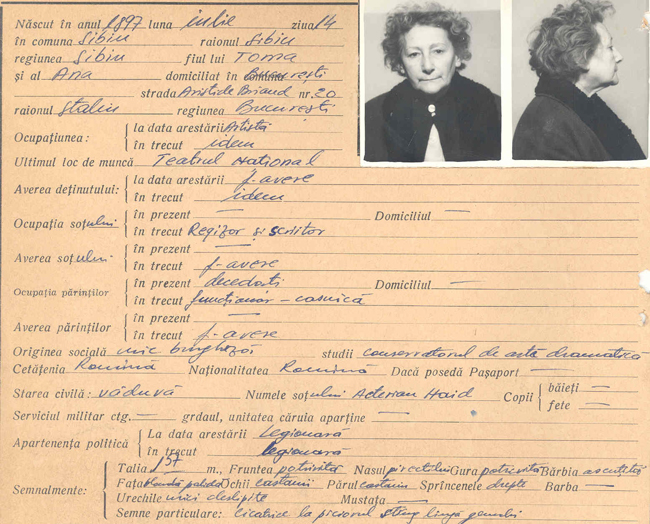 Născut în anul 1897 luna iulie ziua 14
în comuna Sibiu raionul Sibiu
regiunea Sibiu fiul lui Toma
și al Ana domiciliat în comuna București
strada Aristide Briand nr. 20
raionul Stalin regiunea București
Ocupațiunea: { la data arestării Artistă
în trecut idem
Ultimul loc de muncă Teatrul Național
Averea deținutului: { la data arestării f. avere
în trecut idem
Ocupația soțului { în prezent — Domiciliul —
în trecut Regizor și scriitor
Averea soțului { în prezent —
în trecut f-avere
Ocupația părinților { în prezent decedați Domiciliul —
în trecut funcționar – casnică
Averea părinților { în prezent —
în trecut f-avere
Originea socială mic burgheză studii conservatorul de artă dramatică
Cetățenia Romînă Naționalitatea Romînă Dacă posedă Pașaport —
Starea civilă: văduvă Numele soțului Acterian Haid Copii { băieți —
fete —
Serviciul militar ctg. — grdaul, unitatea căruia aparține —
Apartenența politică { La data arestării Legionară
în trecut legionară
Semnalmente: { Talia 157 m., Fruntea potrivită Nasul Gura potrivită Bărbia ascuțită
Fața palidă Ochii castanii Părul castaniu Sprîncenele drepte Barba —
Urechile mici deslipite Mustața —
Semne particulare: cicatrice la piciorul stîng lîngă genunchi